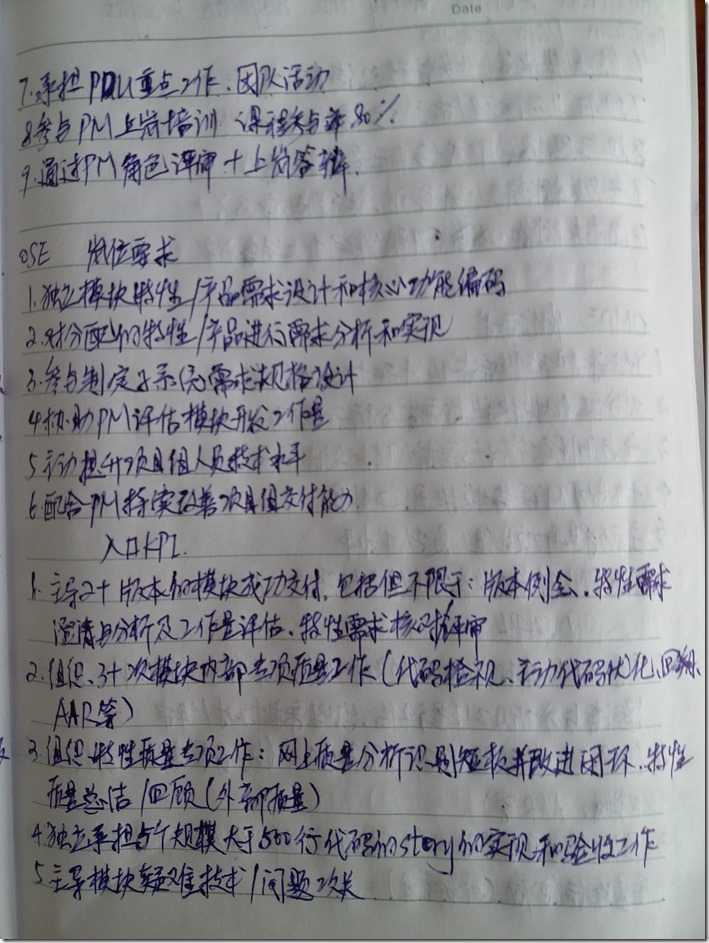 Date
7.承担PDU重点工作、团队活动
8.参与PM上岗培训 课程参与率80%
9.通过PM角色评审+上岗答辩.
OSE 岗位需求
1.独立模块特性/产品需求设计和核心功能编码
2.对分配的特性/产品进行需求分析和实现
3.参与制定子系统需求规格设计
4.协助PM评估模块开发工作量
5.主动提升项目组人员技术水平
6.配合PM持续改善项目组交付能力
入口KPI.
1.主导2+版本的模块成功交付,包括但不限于:版本例会、特性需求
澄清与分析及工作量评估、特性需求核心评审
2.组织、3+次模块内部专项质量工作(代码检视、主动代码优化、回溯、
AAR等)
3.组织特性质量专项工作:网上质量分析识别短板并改进闭环、特性
质量总结/回顾(外部质量)
4.独立承担5个规模大于500行代码的story的实现和验收工作
5.主导模块疑难技术/问题